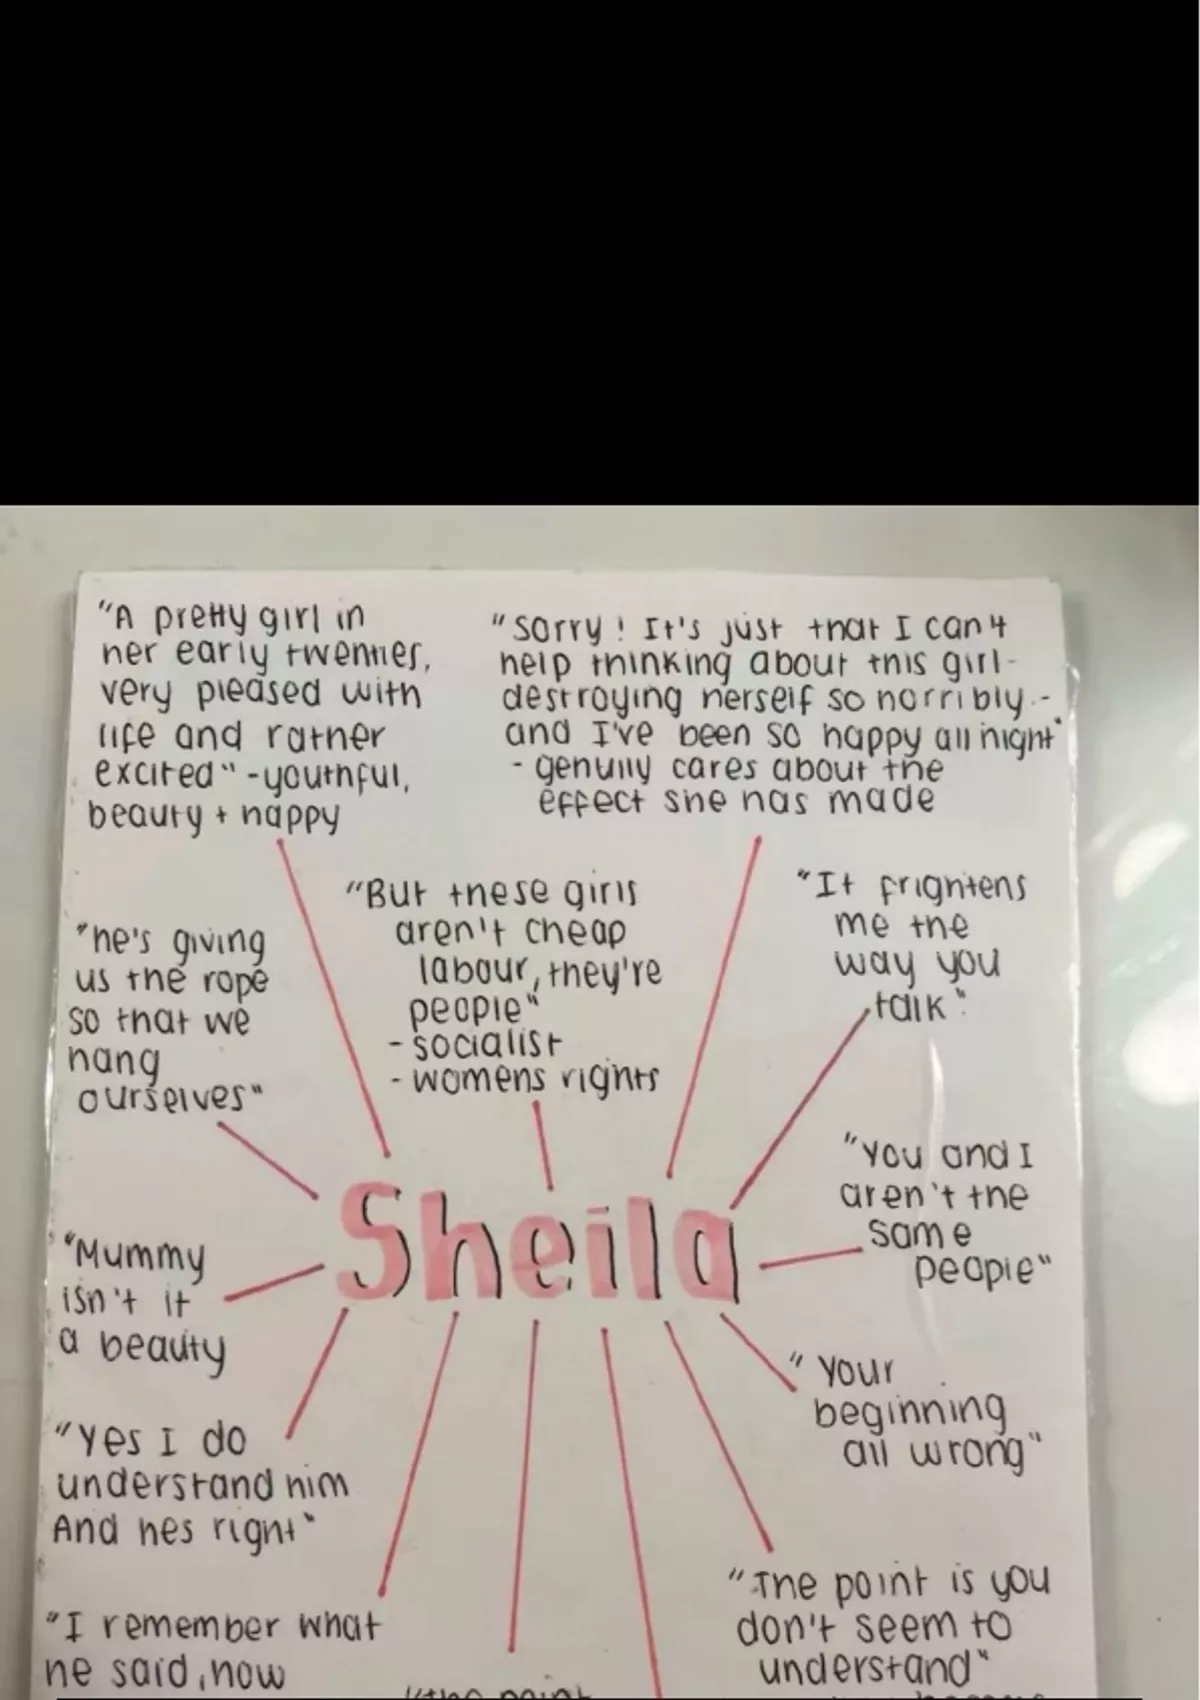 "A pretty girl in
her early twenties,
very pleased with
life and rather
excited" - youthful,
beauty + happy
"Sorry! It's just that I can't
help thinking about this girl -
destroying herself so horribly -
and I've been so happy all night"
- genuily cares about the
effect she has made
"But these girls
aren't cheap
labour, they're
people"
- socialist
- womens rights
"It frightens
me the
way you
talk"
"he's giving
us the rope
so that we
hang
ourselves"
"You and I
aren't the
same
people"
Sheila
"Mummy
isn't it
a beauty
"Your
beginning
all wrong"
"Yes I do
understand him
And hes right"
"The point is you
don't seem to
understand"
"I remember what
he said, now
"the point